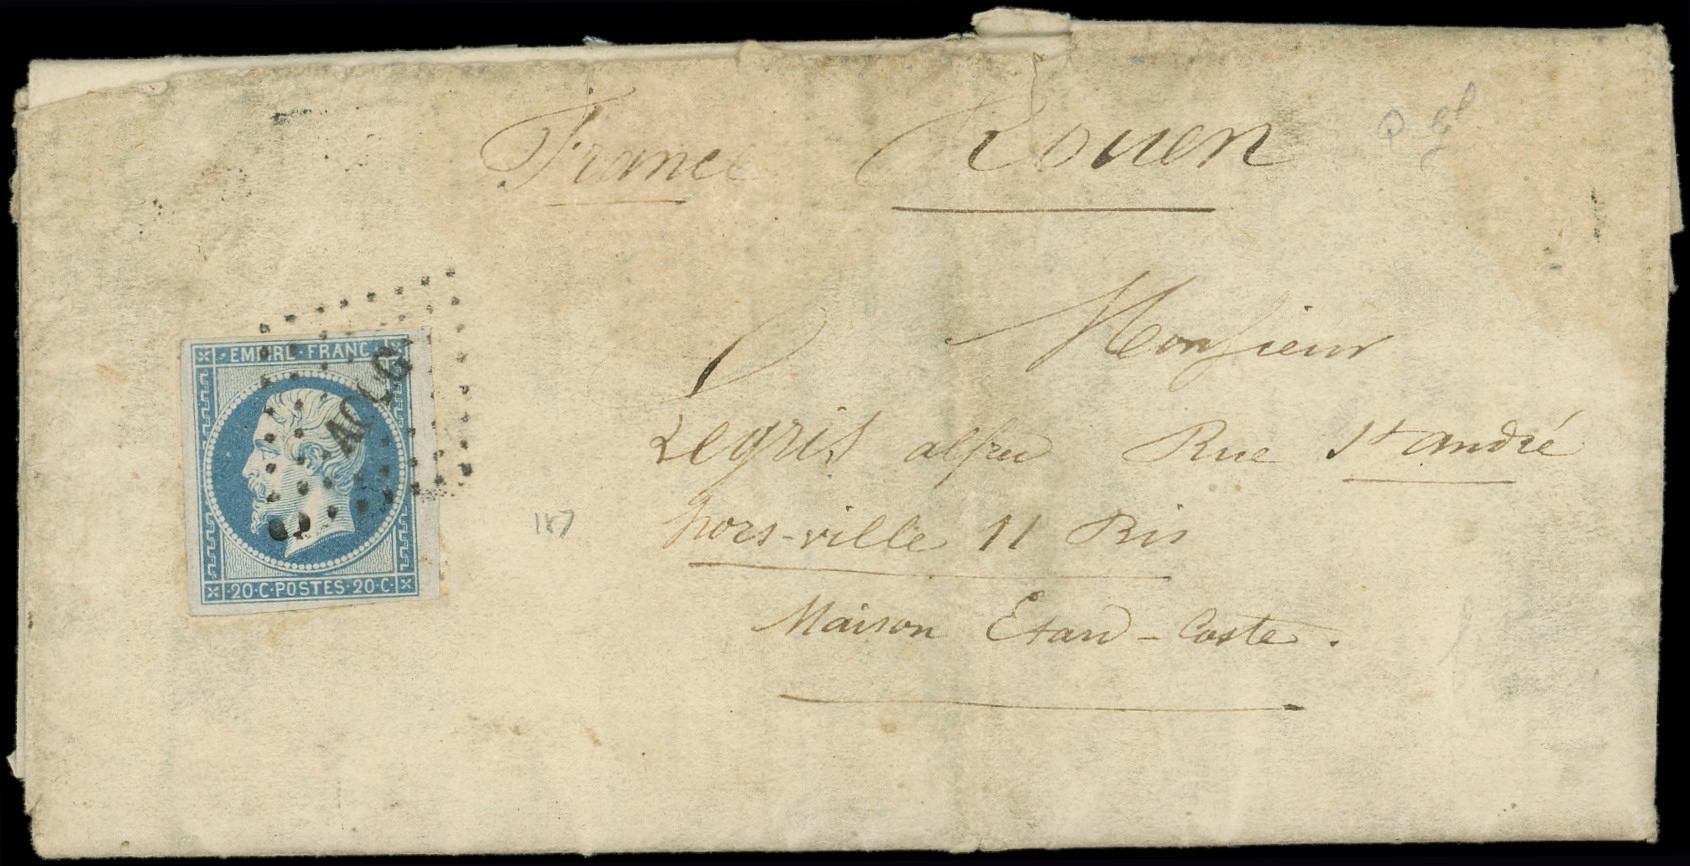 France Rouen
Monsieur
Legris alfred Rue St andré
hors-ville 11 Bis
Maison Etard-Coste.
EMPIRE · FRANC ·
· 20 · C · POSTES · 20 · C ·
187